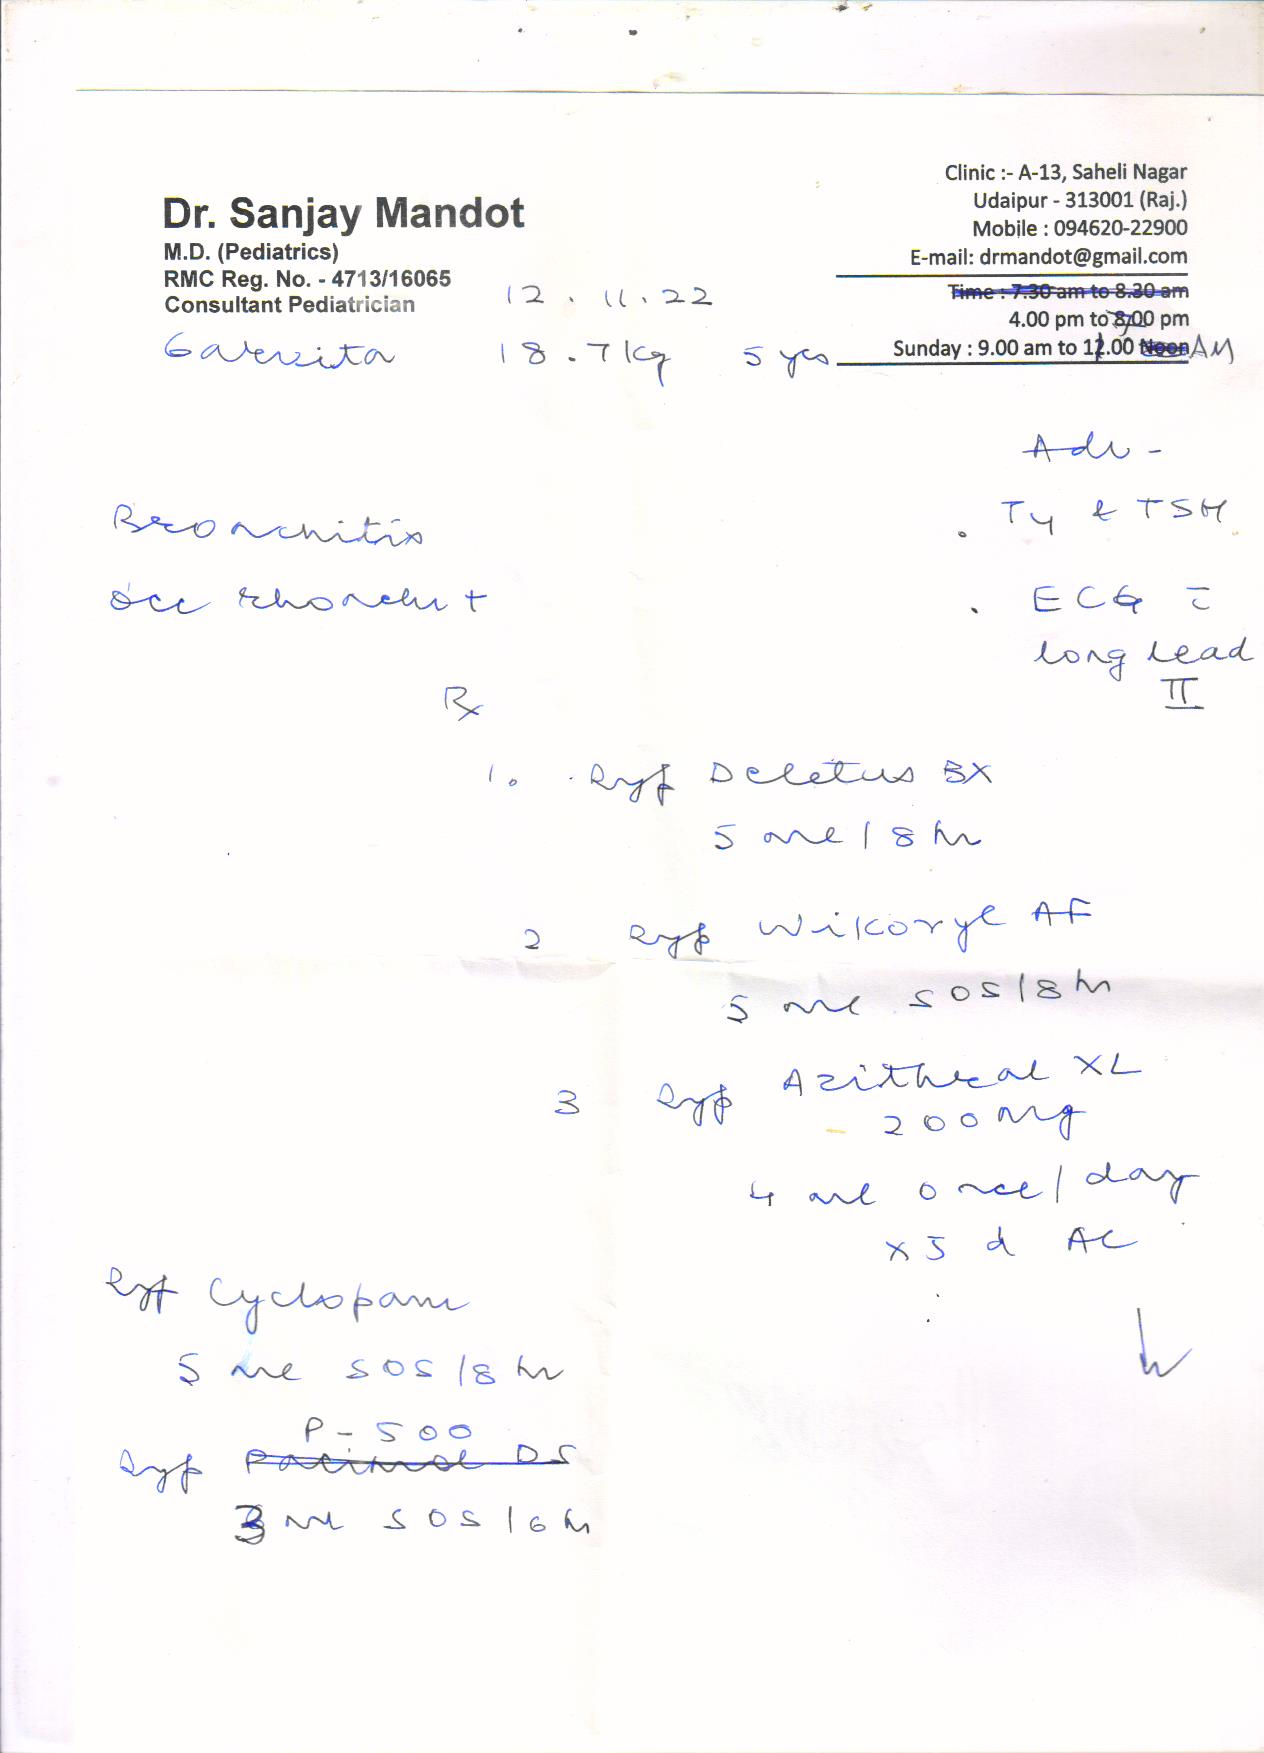 Dr. Sanjay Mandot
M.D. (Pediatrics)
RMC Reg. No. - 4713/16065
Consultant Pediatrician
Clinic :- A-13, Saheli Nagar
Udaipur - 313001 (Raj.)
Mobile : 094620-22900
E-mail: drmandot@gmail.com
Time : 7.30 am to 8.30 am
4.00 pm to :00 pm
Sunday : 9.00 am to 11.00 Noon AM
12.11.22
Garvita 18.7 kg 5 yrs
Adv -
. T4 & TSH
. ECG c̄
long lead
II
Bronchitis
Occ rhonchi +
Rx
1. Syp Deletus BX
5 ml / 8 hr
2 Syp Wikoryl AF
5 ml SOS / 8 hr
3 Syp Azithral XL
200 mg
4 ml once / day
x 5 d AC
Syp Cyclopam
5 ml SOS / 8 hr
P-500
Syp Pacimol DS
3 ml SOS / 6 hr